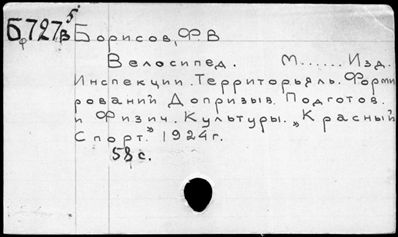 Б 727 5
ф в
Борисов, Ф. В
Велосипед. М...... Изд.
Инспекции. Территорьяль. Форми
рований Допризыв. Подготов.
и Физич. Культуры. „Красный
Спорт." 1924 г.
58 с.